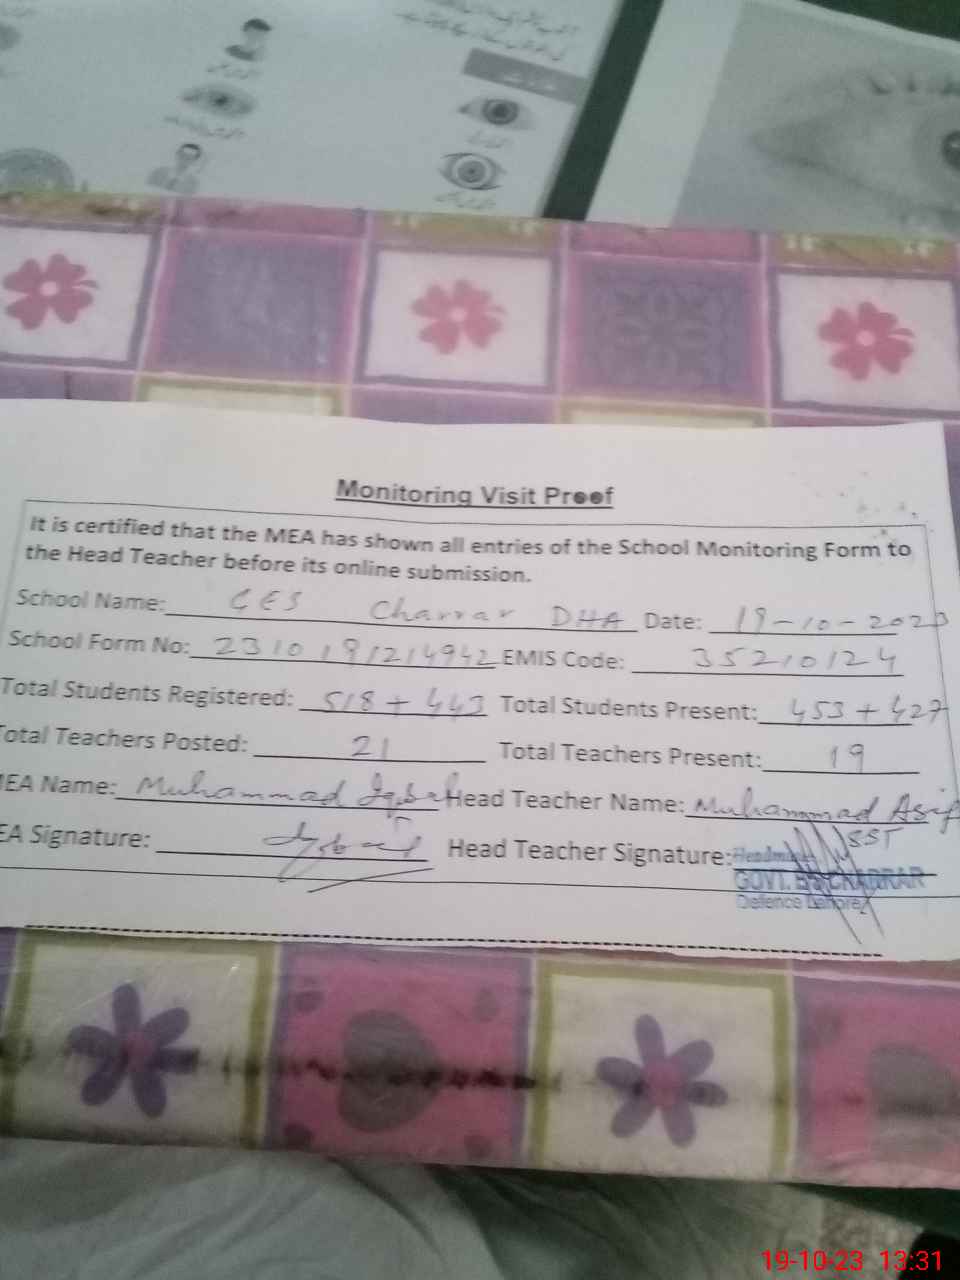 Monitoring Visit Proof
It is certified that the MEA has shown all entries of the School Monitoring Form to
the Head Teacher before its online submission.
School Name: GES Charrar DHA Date: 19-10-2023
School Form No: 2310191214942 EMIS Code: 35210124
Total Students Registered: 518 + 443 Total Students Present: 453 + 427
Total Teachers Posted: 21 Total Teachers Present: 19
MEA Name: Muhammad Iqbal Head Teacher Name: Muhammad Asif
EA Signature: Head Teacher Signature: SST
GOVT. CHARRAR
Defence Lahore
19-10-23 13:31